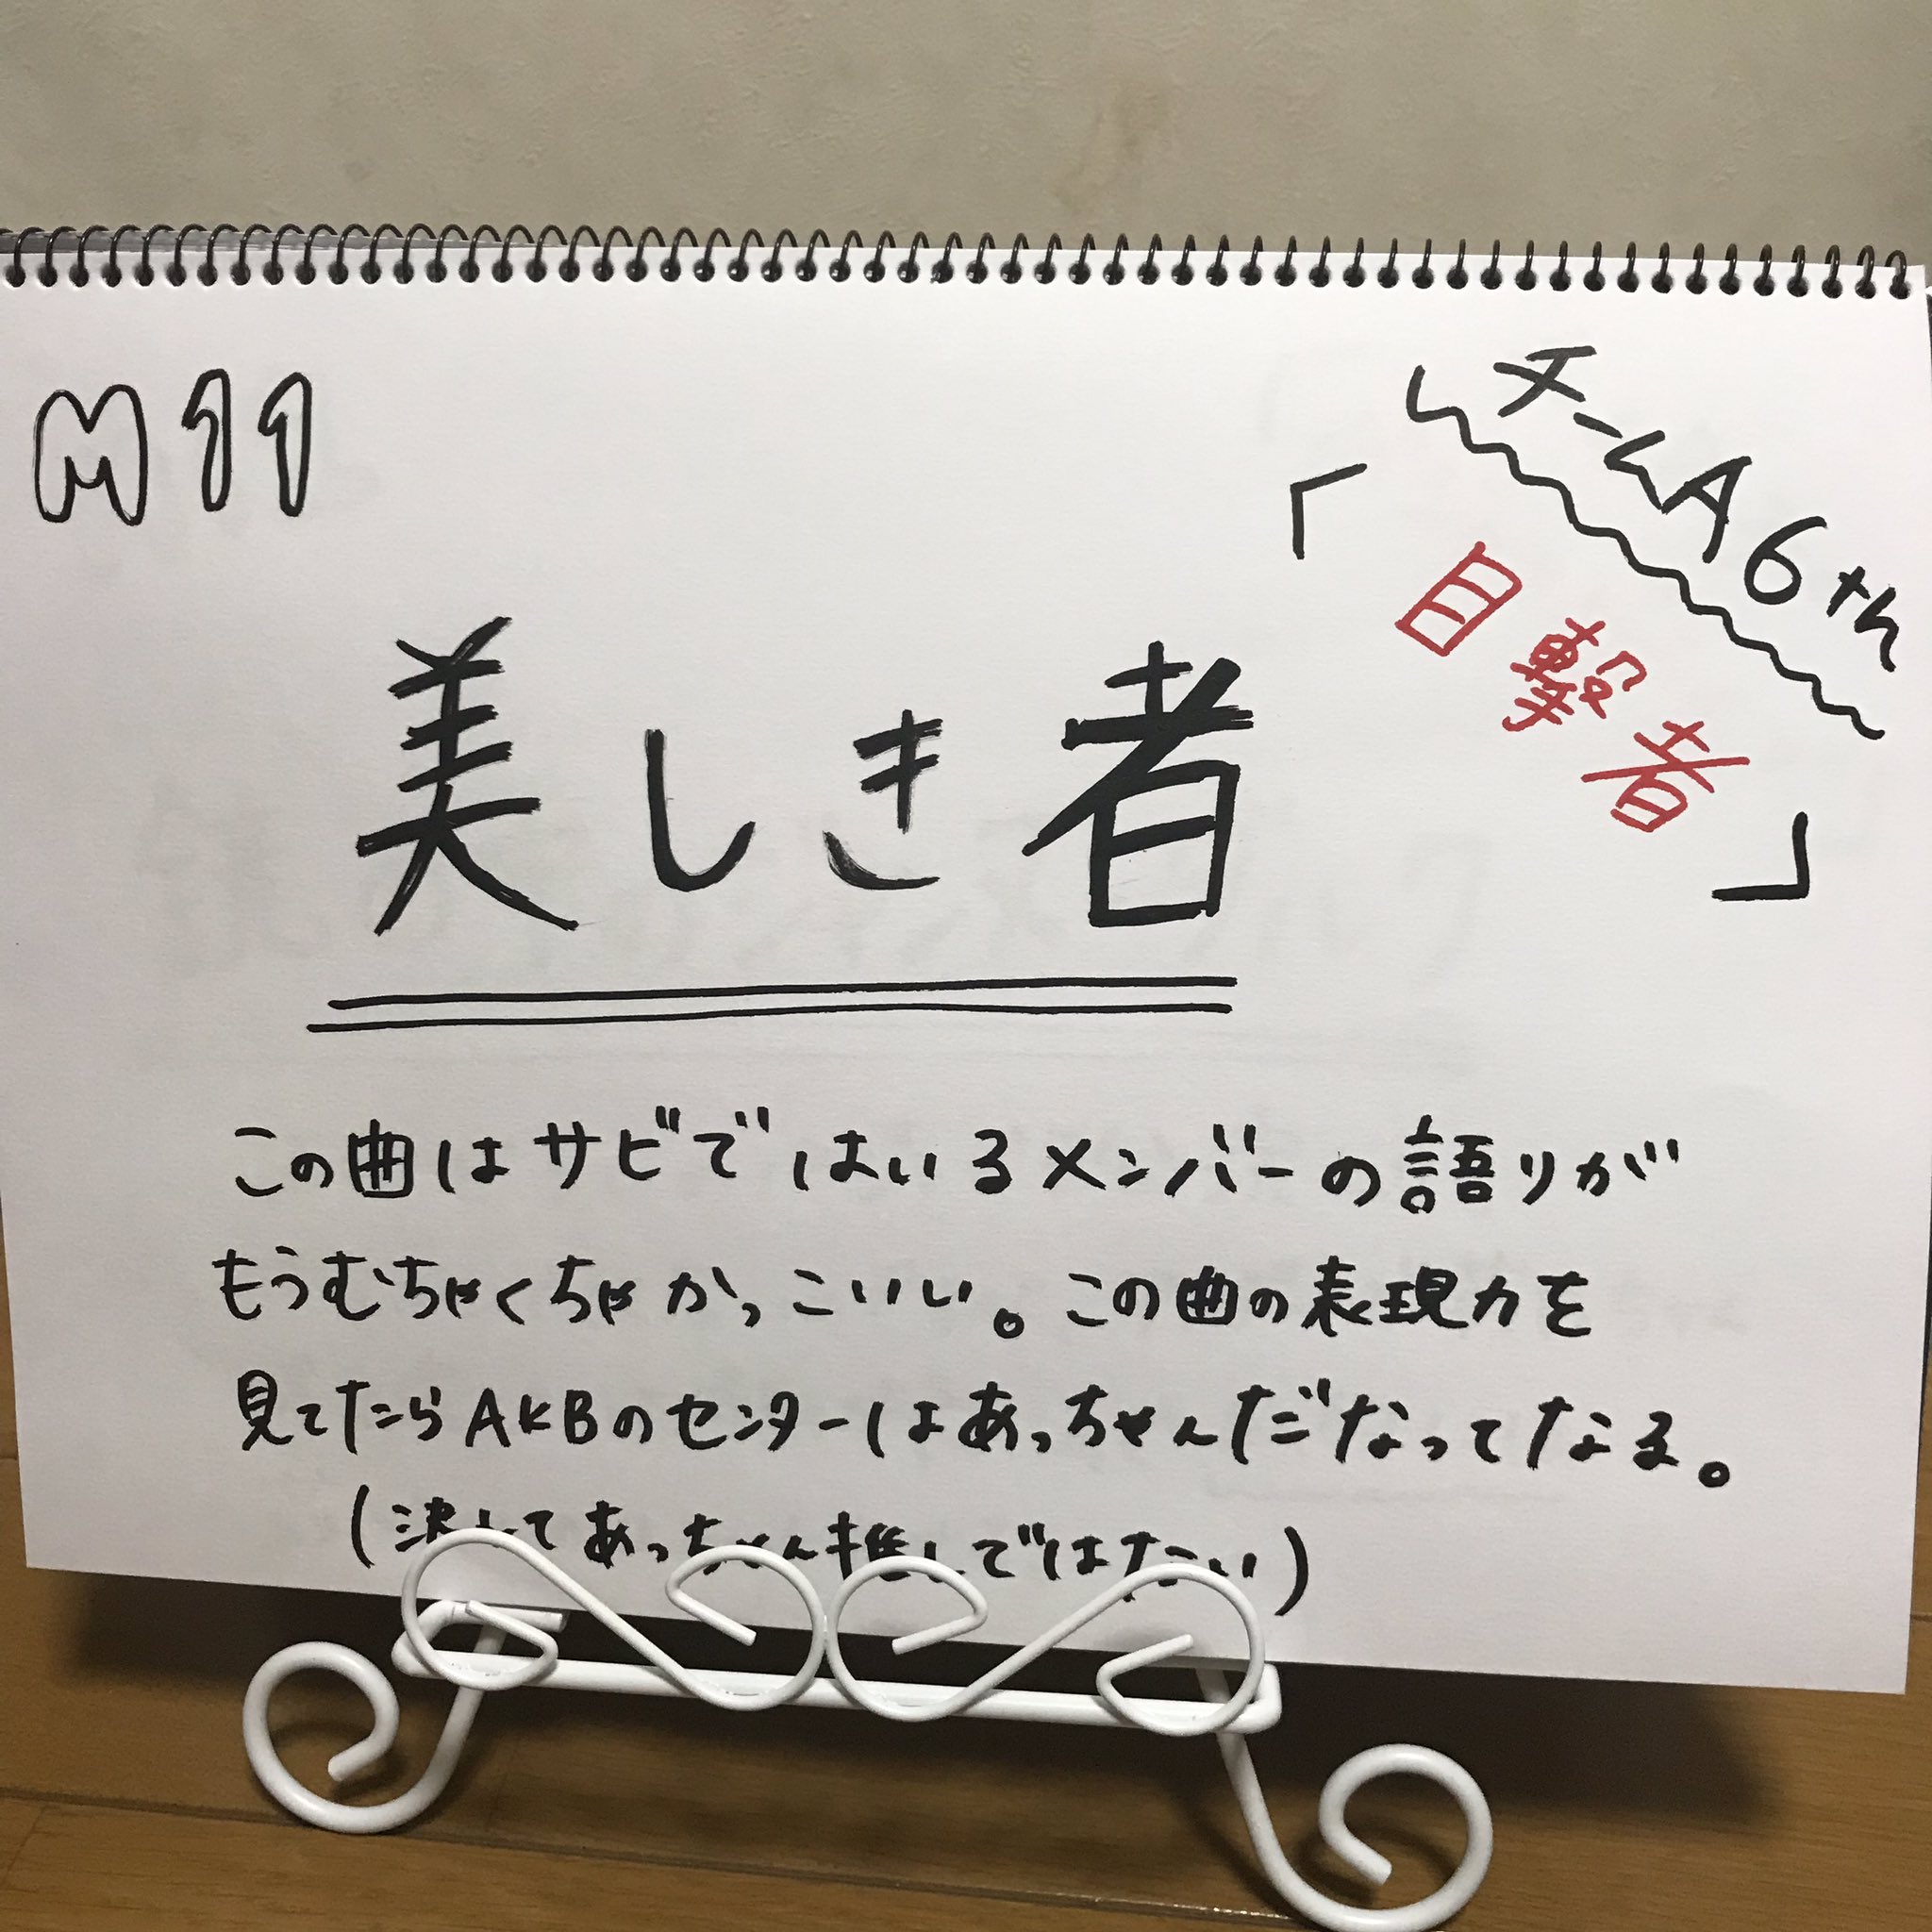 M11
チームA6th
「目撃者」
美しき者
この曲はサビではいるメンバーの語りが
もうむちゃくちゃかっこいい。この曲の表現力を
見てたらAKBのセンターはあっちゃんだなってなる。
(決してあっちゃん推しではない)